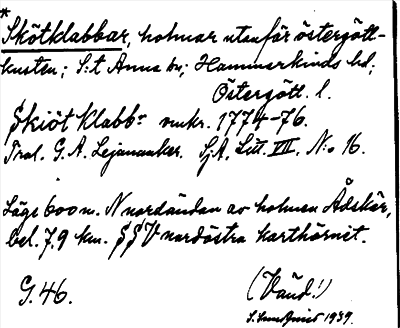 *
Skötklabbar, holmar utanför östergött-
kusten; S:t Anna sn; Hammarkinds hd;
Östergötl. l.
Skiöt Klabbr omkr. 1774-76.
Tral. G. A. Lejonanker. SjA, Litt. VII, N:o 16.
Läge 600 m. N nordändan av holmen Ådskär,
bel. 7,9 km. SSV nordöstra karthörnet.
G. 46. (Vänd!)
1939.